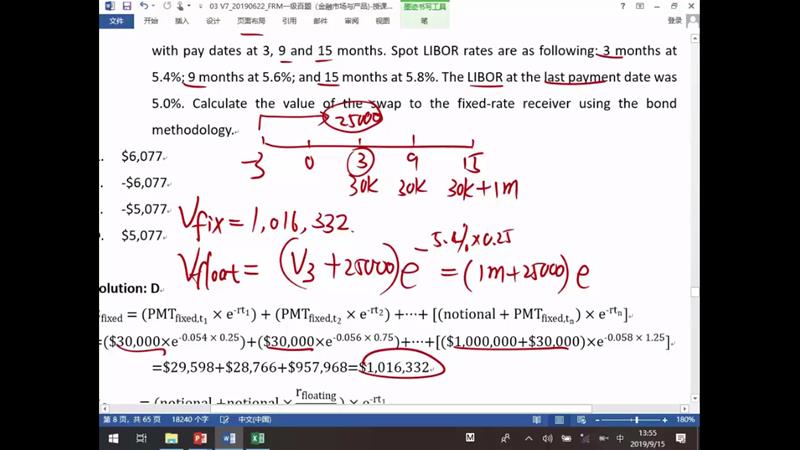 03 V7_20190622_FRM一级百题（金融市场与产品)-授课...
墨迹书写工具
页面布局
笔
登录
with pay dates at 3, 9 and 15 months. Spot LIBOR rates are as following: 3 months at
5.4%; 9 months at 5.6%; and 15 months at 5.8%. The LIBOR at the last payment date was
5.0%. Calculate the value of the swap to the fixed-rate receiver using the bond
methodology.
25000
-3 0 3 9 15
30K 30K 30K+1M
$6,077
-$6,077
-$5,077
$5,077
Vfix = 1,016,332.
Vfloat = (V3+25000)e^-5.4%×0.25 = (1M+25000)e
olution: D
fixed = (PMTfixed,t1 × e^-rt1) + (PMTfixed,t2 × e^-rt2) +⋯+ [(notional + PMTfixed,tn) × e^-rtn]
=($30,000×e^-0.054×0.25)+($30,000×e^-0.056×0.75)+⋯+[($1,000,000+$30,000)×e^-0.058×1.25]
=$29,598+$28,766+$957,968=$1,016,332
= (notional +notional × rfloating) × e^-rt1
第 8 页，共 65 页 18240 个字 中文(中国) 180%
M 中 13:55
2019/9/15